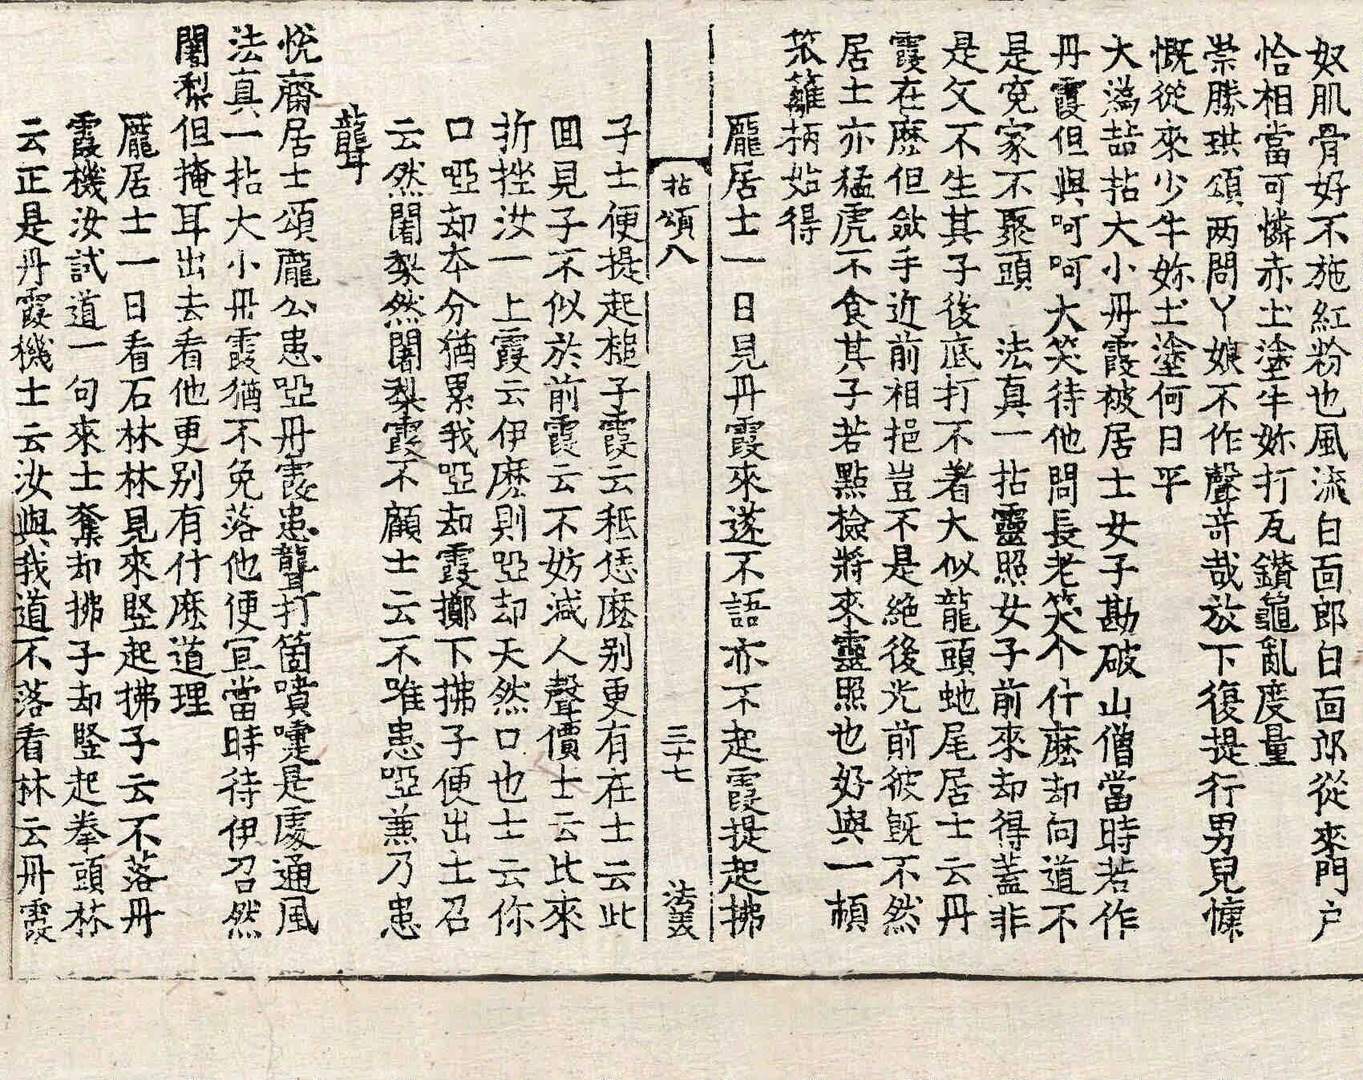 奴肌骨好不施紅粉也風流白面郎白面郎從來門户
恰相當可憐赤土塗牛妳打瓦鑽龜亂度量
崇勝珙頌两問丫娘不作聲苛哉放下復提行男兒慷
慨從來少牛妳土塗何日平
大溈喆拈大小丹霞被居士女子勘破山僧當時若作
丹霞但與呵呵大笑待他問長老笑个什麽却向道不
是寃家不聚頭　法真一拈靈照女子前來却得盖非
是父不生其子後底打不著大似龍頭虵尾居士云丹
霞在麽但斂手近前相挹豈不是絶後光前彼既不然
居士亦猛虎不食其子若點檢將來靈照也好與一頓
笊籬柄始得
龐居士一日見丹霞來遂不語亦不起霞提起拂
拈頌八
三十七
法義
子士便提起槌子霞云秪恁麽别更有在士云此
回見子不似於前霞云不妨減人聲價士云比來
折挫汝一上霞云伊麽則啞却天然口也士云你
口啞却本分猶累我啞却霞擲下拂子便出士召
云然闍梨然闍梨霞不顧士云不唯患啞兼乃患
聾
悅齋居士頌龐公患啞丹霞患聾打箇噴嚔是處通風
法真一拈大小丹霞猶不免落他便冝當時待伊召然
闍梨但掩耳出去看他更别有什麽道理
龐居士一日看石林林見來竪起拂子云不落丹
霞機汝試道一句來士奪却拂子却竪起拳頭林
云正是丹霞機士云汝與我道不落看林云丹霞